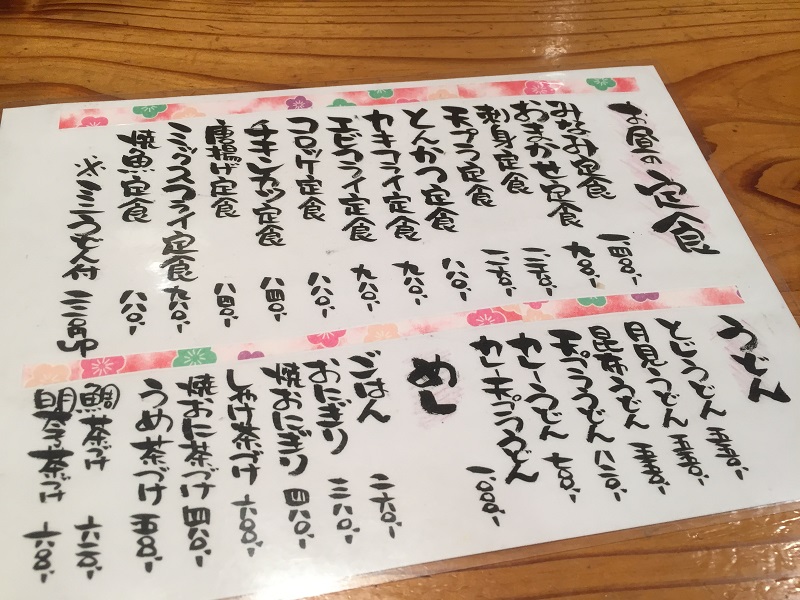 お昼の定食
みなみ定食 一四〇〇、
おまかせ定食 九八〇、
刺身定食
天プラ定食
とんかつ定食 八八〇、
カキフライ定食 九八〇、
エビフライ定食 九八〇、
コロッケ定食 八八〇、
チキンカツ定食 八四〇、
唐揚げ定食 八四〇、
ミックスフライ定食 九八〇、
焼魚定食 八八〇、
※ミニうどん付
うどん
とじうどん 五五〇、
月見うどん 五五〇、
昆布うどん 五五〇、
天プラうどん 八二〇、
カレーうどん 七八〇、
カレー天プラうどん 一〇〇〇、
めし
ごはん 二六〇、
おにぎり 三六〇、
焼おにぎり 四八〇、
しゃけ茶づけ 六八〇、
焼おに茶づけ 四八〇、
うめ茶づけ 五八〇、
鯛茶づけ 六八〇、
明太茶づけ 六八〇、